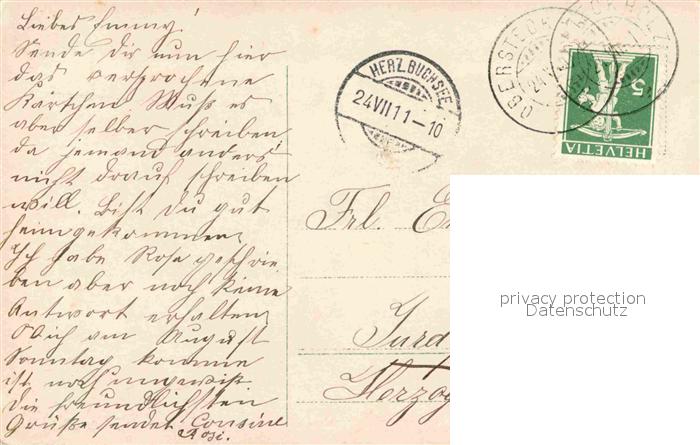 Liebes Emmy!
Sende dir nun hier
das versprochene
Kärtchen Muß es
aber selber schreiben
da jemand anders
nicht drauf schreiben
will. Bist du gut
heimgekommen,
Ich habe Rosa geschrie
ben aber noch keine
Antwort erhalten
Ob ich am August
Sonntag komme
ist noch ungewiß
Die freundlichsten
Grüße sendet Cousine
Rosi.
HERZ.BUCHSEE
24 VII 11-10
OBERSTECKHOLZ
5
HELVETIA
Frl.
Herzog
privacy protection
Datenschutz